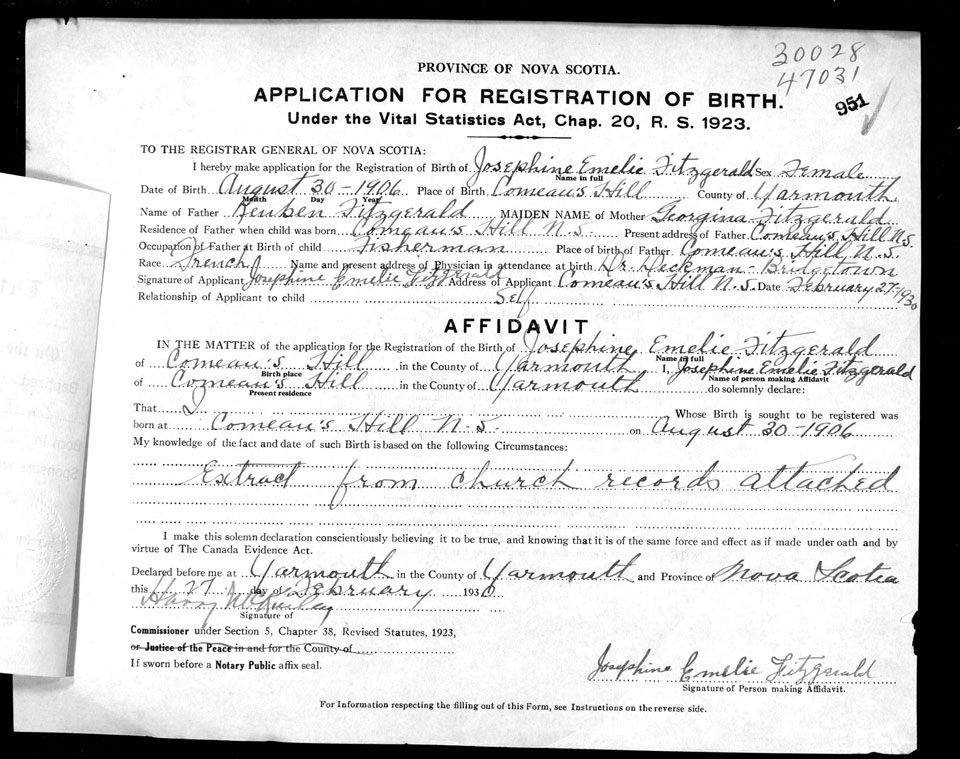 30028
47031
951
PROVINCE OF NOVA SCOTIA.
APPLICATION FOR REGISTRATION OF BIRTH.
Under the Vital Statistics Act, Chap. 20, R. S. 1923.
TO THE REGISTRAR GENERAL OF NOVA SCOTIA:
I hereby make application for the Registration of Birth of Josephine Emelie Fitzgerald Sex Female
Name in full
Date of Birth August 30-1906 Place of Birth Comeau's Hill County of Yarmouth
Month Day Year
Name of Father Reuben Fitzgerald MAIDEN NAME of Mother Georgina Fitzgerald
Residence of Father when child was born Comeau's Hill N.S. Present address of Father Comeau's Hill N.S.
Occupation of Father at Birth of child Fisherman Place of birth of Father Comeau's Hill, N.S.
Race French Name and present address of Physician in attendance at birth Dr. Deckman - Bridgetown
Signature of Applicant Josephine Emelie Fitzgerald Address of Applicant Comeau's Hill N.S. Date February 27-1930
Relationship of Applicant to child Self
AFFIDAVIT
IN THE MATTER of the application for the Registration of the Birth of Josephine Emelie Fitzgerald
Name in full
of Comeau's Hill in the County of Yarmouth I, Josephine Emelie Fitzgerald
Birth place Name of person making Affidavit
of Comeau's Hill in the County of Yarmouth do solemnly declare:
Present residence
That I Whose Birth is sought to be registered was
born at Comeau's Hill N.S. on August 30-1906
My knowledge of the fact and date of such Birth is based on the following Circumstances:
Extract from church records attached
I make this solemn declaration conscientiously believing it to be true, and knowing that it is of the same force and effect as if made under oath and by
virtue of The Canada Evidence Act.
Declared before me at Yarmouth in the County of Yarmouth and Province of Nova Scotia
this 27 day of February 1930
Harry
Signature of
Commissioner under Section 5, Chapter 38, Revised Statutes, 1923,
or Justice of the Peace in and for the County of
If sworn before a Notary Public affix seal.
Josephine Emelie Fitzgerald
Signature of Person making Affidavit.
For Information respecting the filling out of this Form, see Instructions on the reverse side.